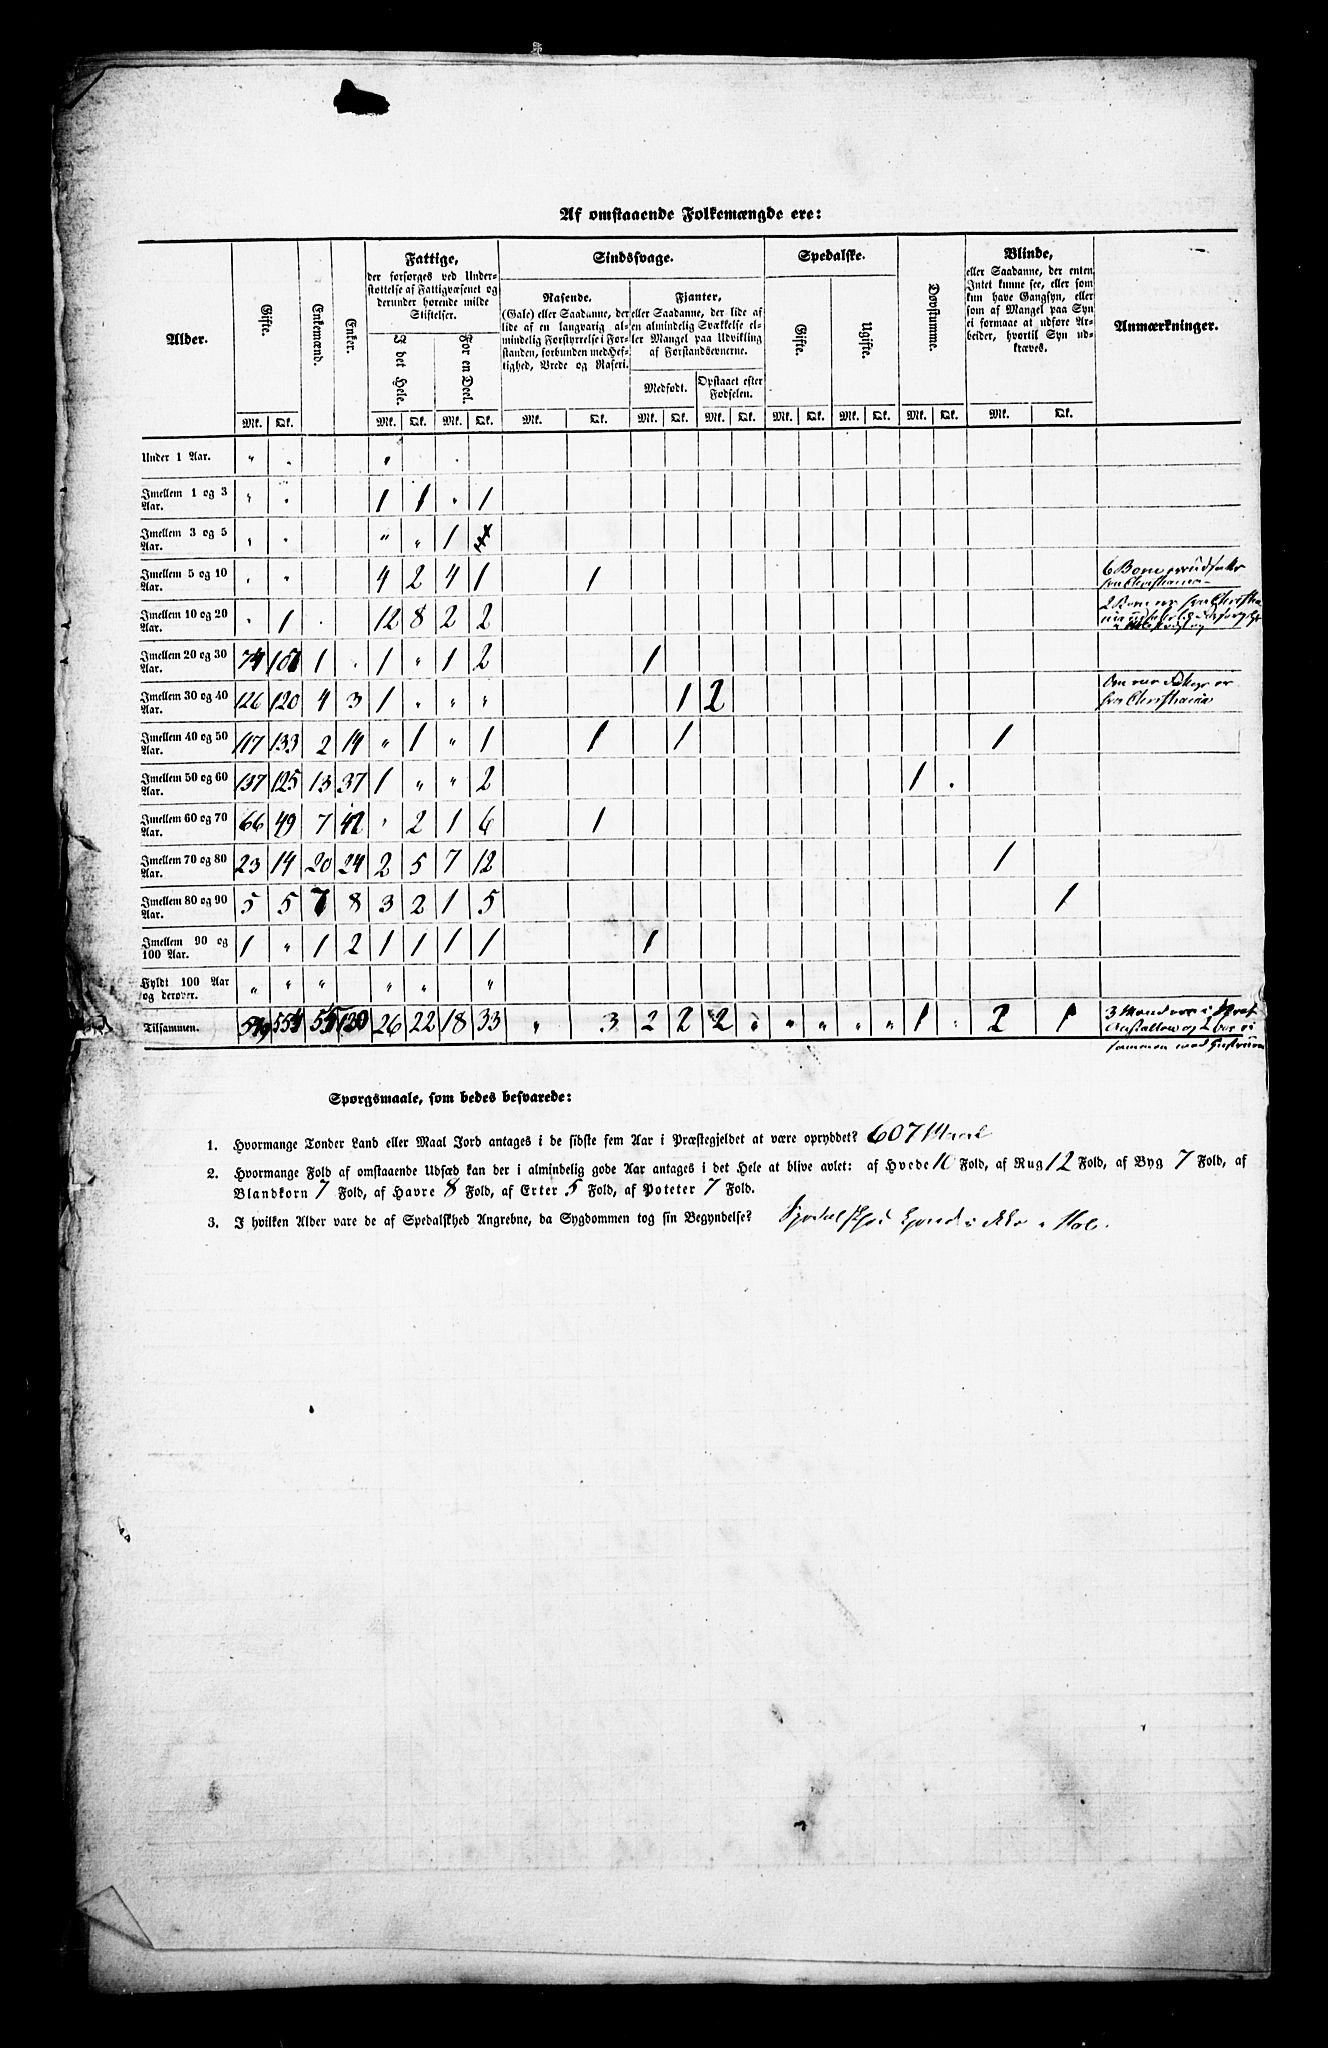 Af omstaaende Folkemængde ere:
Alder.
Gifte.
Enkemænd.
Enker.
Fattige,
der forsørges ved Under-
støttelse af Fattigvæsenet og
derunder hørende milde
Stiftelser.
I det Hele.
For en Deel.
Sindssvage.
Rasende.
(Gale) eller Saadanne, der
lide af en langvarig al-
mindelig Forstyrrelse i For-
standen, forbunden med Hef-
tighed, Vrede og Raseri.
Fjanter,
eller Saadanne, der lide af
en almindelig Svækkelse el-
ler Mangel paa Udvikling
af Forstandsevnerne.
Medfødt.
Opstaaet efter
Fødselen.
Spedalske.
Gifte.
Ugifte.
Døvstumme.
Blinde,
eller Saadanne, der enten
Intet kunne see, eller som
kun have Gangsyn, eller
som af Mangel paa Syn
ei formaae at udføre Ar-
beider, hvortil Syn ud-
kræves.
Anmærkninger.
Mk. Qk. Mk. Qk. Mk. Qk. Mk. Qk. Mk. Qk. Mk. Qk. Mk. Qk. Mk. Qk. Mk. Qk. Mk. Qk.
Under 1 Aar. " . " .
Imellem 1 og 3 Aar. " " 1 1 " 1
Imellem 3 og 5 Aar. " " " " 1
Imellem 5 og 10 Aar. " " 4 2 4 1 1
6 Børn ere udsatte
fra Christiania
Imellem 10 og 20 Aar. " 1 . 12 8 2 2
2 Børn er fra Christia
Imellem 20 og 30 Aar. 1 . 1 " 1 2 1
Imellem 30 og 40 Aar. 126 120 4 3 1 " " " 1 2
er
fra Christiania
Imellem 40 og 50 Aar. 117 133 2 14 " 1 " 1 1 1 1
Imellem 50 og 60 Aar. 137 125 13 37 1 " " 2 1 .
Imellem 60 og 70 Aar. 66 49 7 42 " 2 1 6 1
Imellem 70 og 80 Aar. 23 14 20 24 2 5 7 12 1
Imellem 80 og 90 Aar. 5 5 7 8 3 2 1 5 1
Imellem 90 og 100 Aar. 1 " 1 2 1 1 1 1 1
Fyldt 100 Aar og derover. " " " " " "
Tilsammen. 549 554 55 130 26 22 18 33 " 3 2 2 2 " " " " " 1 " 2 1
3 Mænd var i
og 2 bor ei
sammen med Hustruen
Spørgsmaale, som bedes besvarede:
1. Hvormange Tønder Land eller Maal Jord antages i de sidste fem Aar i Præstegjeldet at være opryddet? 607 Maal
2. Hvormange Fold af omstaaende Udsæd kan der i almindelig gode Aar antages i det Hele at blive avlet: af Hvede Fold, af Rug 12 Fold, af Byg 7 Fold, af
Blandkorn 7 Fold, af Havre 8 Fold, af Erter 5 Fold, af Poteter 7 Fold.
3. I hvilken Alder vare de af Spedalskhed Angrebne, da Sygdommen tog sin Begyndelse? Spedalskhed